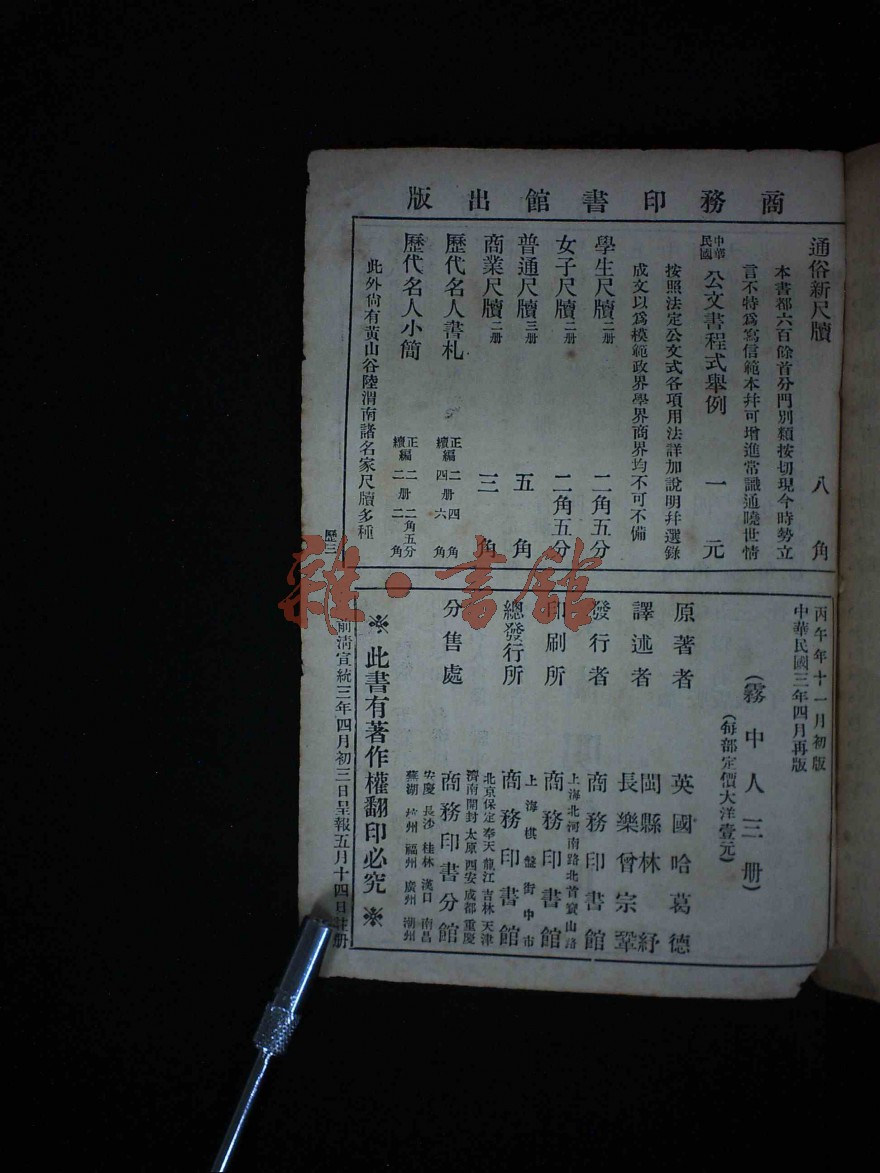 商務印書館出版
通俗新尺牘 八角
本書都六百餘首分門別類按切現今時勢立
言不特爲寫信範本幷可增進常識通曉世情
中華民國公文書程式舉例 一元
按照法定公文式各項用法詳加說明幷選錄
成文以爲模範政界學界商界均不可不備
學生尺牘二册 二角五分
女子尺牘二册 二角五分
普通尺牘三册 五角
商業尺牘二册 三角
歷代名人書札 正編二册四角 續編四册六角
歷代名人小簡 正編二册二角五分 續編二册二角
此外尙有黃山谷陸渭南諸名家尺牘多種
歷三
丙午年十一月初版
中華民國三年四月再版
(霧中人三册)
(每部定價大洋壹元)
原著者 英國哈葛德
譯述者 閩縣林紓
長樂曾宗鞏
發行者 商務印書館
上海北河南路北首寶山路
印刷所 商務印書館
上海棋盤街中市
總發行所 商務印書館
北京保定奉天龍江吉林天津
濟南開封太原西安成都重慶
分售處 商務印書分館
安慶長沙桂林漢口南昌
蕪湖杭州福州廣州潮州
※此書有著作權翻印必究※
前淸宣統三年四月初三日呈報五月十四日註册
雜·書館